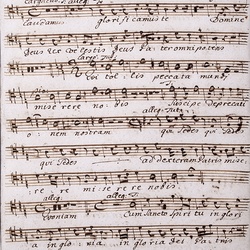 glorificamus te Domine
Deus Rex coelestis Deus Pater omnipotens
Qui tollis peccata mundi
miserere nobis Suscipe deprecati
onem nostram qui sedes qui sedes
qui sedes ad dexteram Patris mise
rere miserere nobis
alleg.
Quoniam Cum Sancto Spiritu in glori
a in gloria in gloria dei Patris